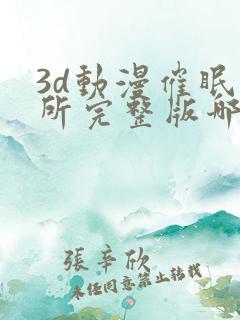 3d動漫催眠
所完整版哪
張辛欣
未任同意禁止轉載